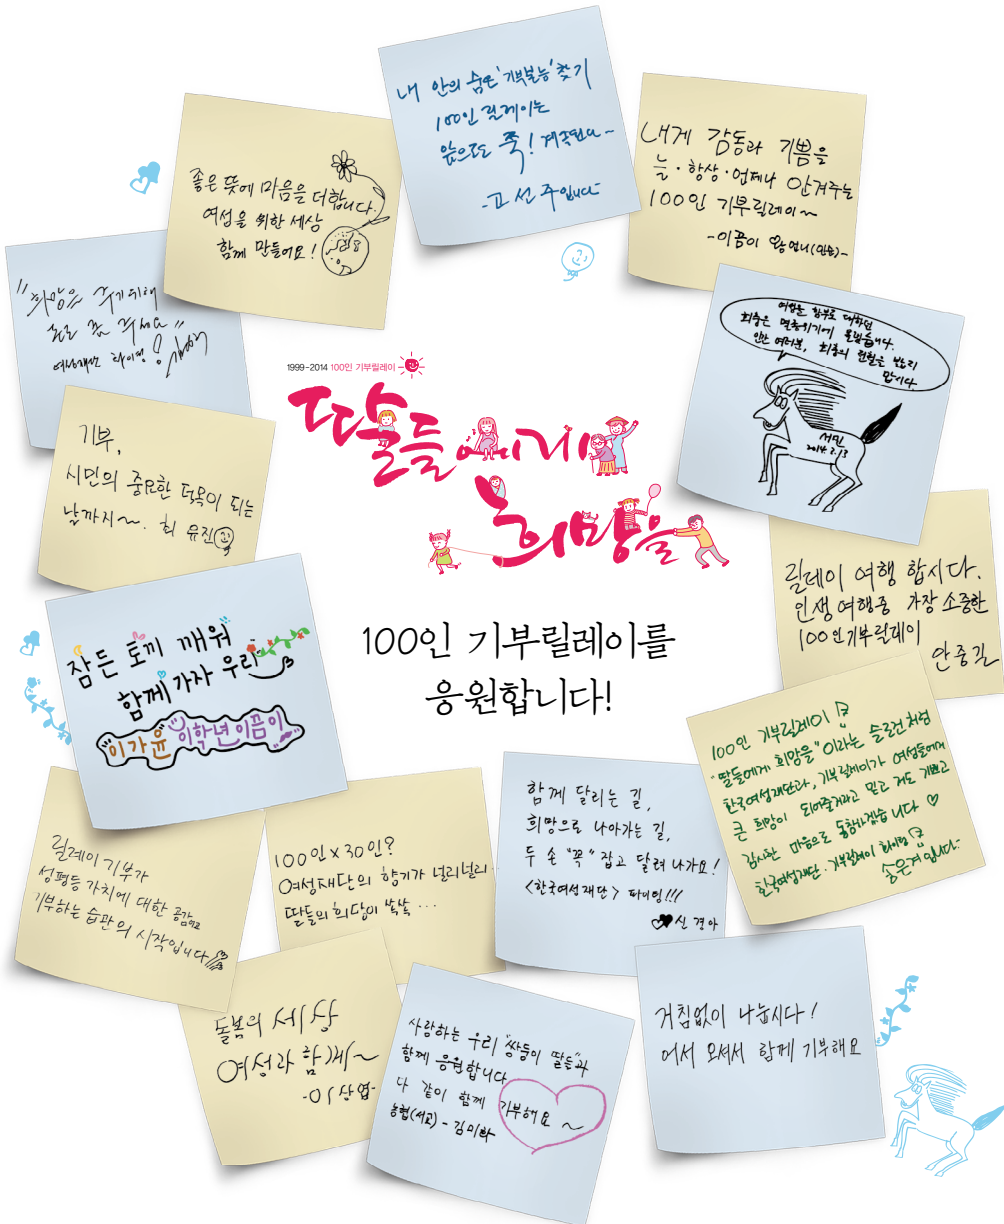 내 안의 숨은 '기부본능' 찾기
100인 릴레이는
앞으로도 쭉! 계속된다~
-고선주입니다-
내게 감동과 기쁨을
늘·항상·언제나 안겨주는
100인 기부릴레이~
-이끔이 왕언니(민요)-
좋은 뜻에 마음을 더합니다.
여성을 위한 세상
함께 만들어요!
"희망을 주기위해
손을 좀 주세요"
여성재단 화이팅!
여성을 함부로 대하던
회충은 멸종위기에 몰렸습니다.
인간 여러분, 회충의 전철을 밟지
맙시다.
서민
2014.2.13
1999-2014 100인 기부릴레이
딸들에게
희망을
기부,
시민의 중요한 덕목이 되는
날까지~. 최유진
릴레이 여행 합시다.
인생여행중 가장 소중한
100인기부릴레이
안중길
잠든 토끼 깨워
함께 가자 우리
이가윤 이학년이끔이
100인 기부릴레이를
응원합니다!
100인 기부릴레이
"딸들에게 희망을" 이라는 슬로건처럼
한국여성재단과, 기부릴레이가 여성들에게
큰 희망이 되어줄거라고 믿고 저도 기쁘고
감사한 마음으로 동참하겠습니다 ♡
한국여성재단·기부릴레이 화이팅
송은계입니다-
릴레이 기부가
성평등 가치에 대한 공감이고
기부하는 습관의 시작입니다
100인×30인?
여성재단의 향기가 널리널리~
딸들의 희망이 쑥쑥 ...
함께 달리는 길,
희망으로 나아가는 길,
두 손 "꼭" 잡고 달려 나가요!
<한국여성재단> 파이팅!!!
신경아
돌봄의 세상
여성과 함께~
-이상엽-
사랑하는 우리 "쌍둥이 딸들"과
함께 응원합니다
다 같이 함께 기부해요~
농협(서교) - 김미화
거침없이 나눕시다!
어서 오셔서 함께 기부해요